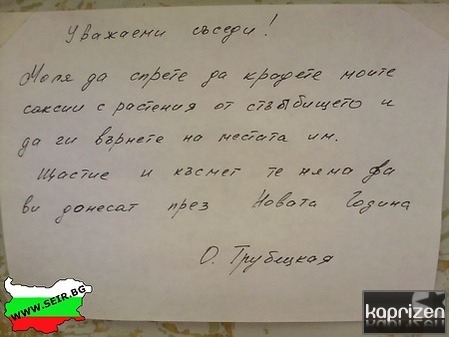 Уважаеми съседи!
Моля да спрете да крадете моите
саксии с растения от стълбището и
да ги върнете на местата им.
Щастие и късмет те няма да
ви донесат през Новата Година
О. Трубецкая
WWW.SEIR.BG
kaprizen